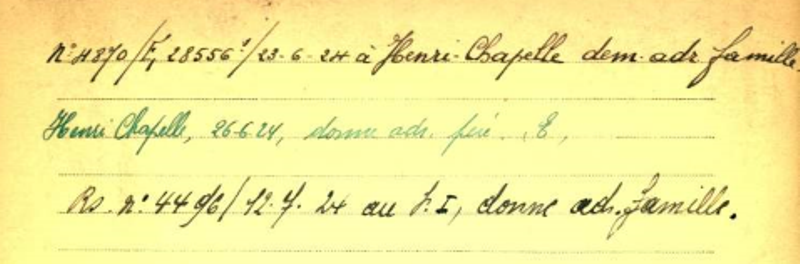 n° 4870/E, 28556°/23-6-24 à Henri-Chapelle dem. adr. famille.
Henri Chapelle, 26.6.24, donne adr. père. E,
Rs. n° 4496/12.7.24 au p. I, donne adr. famille.